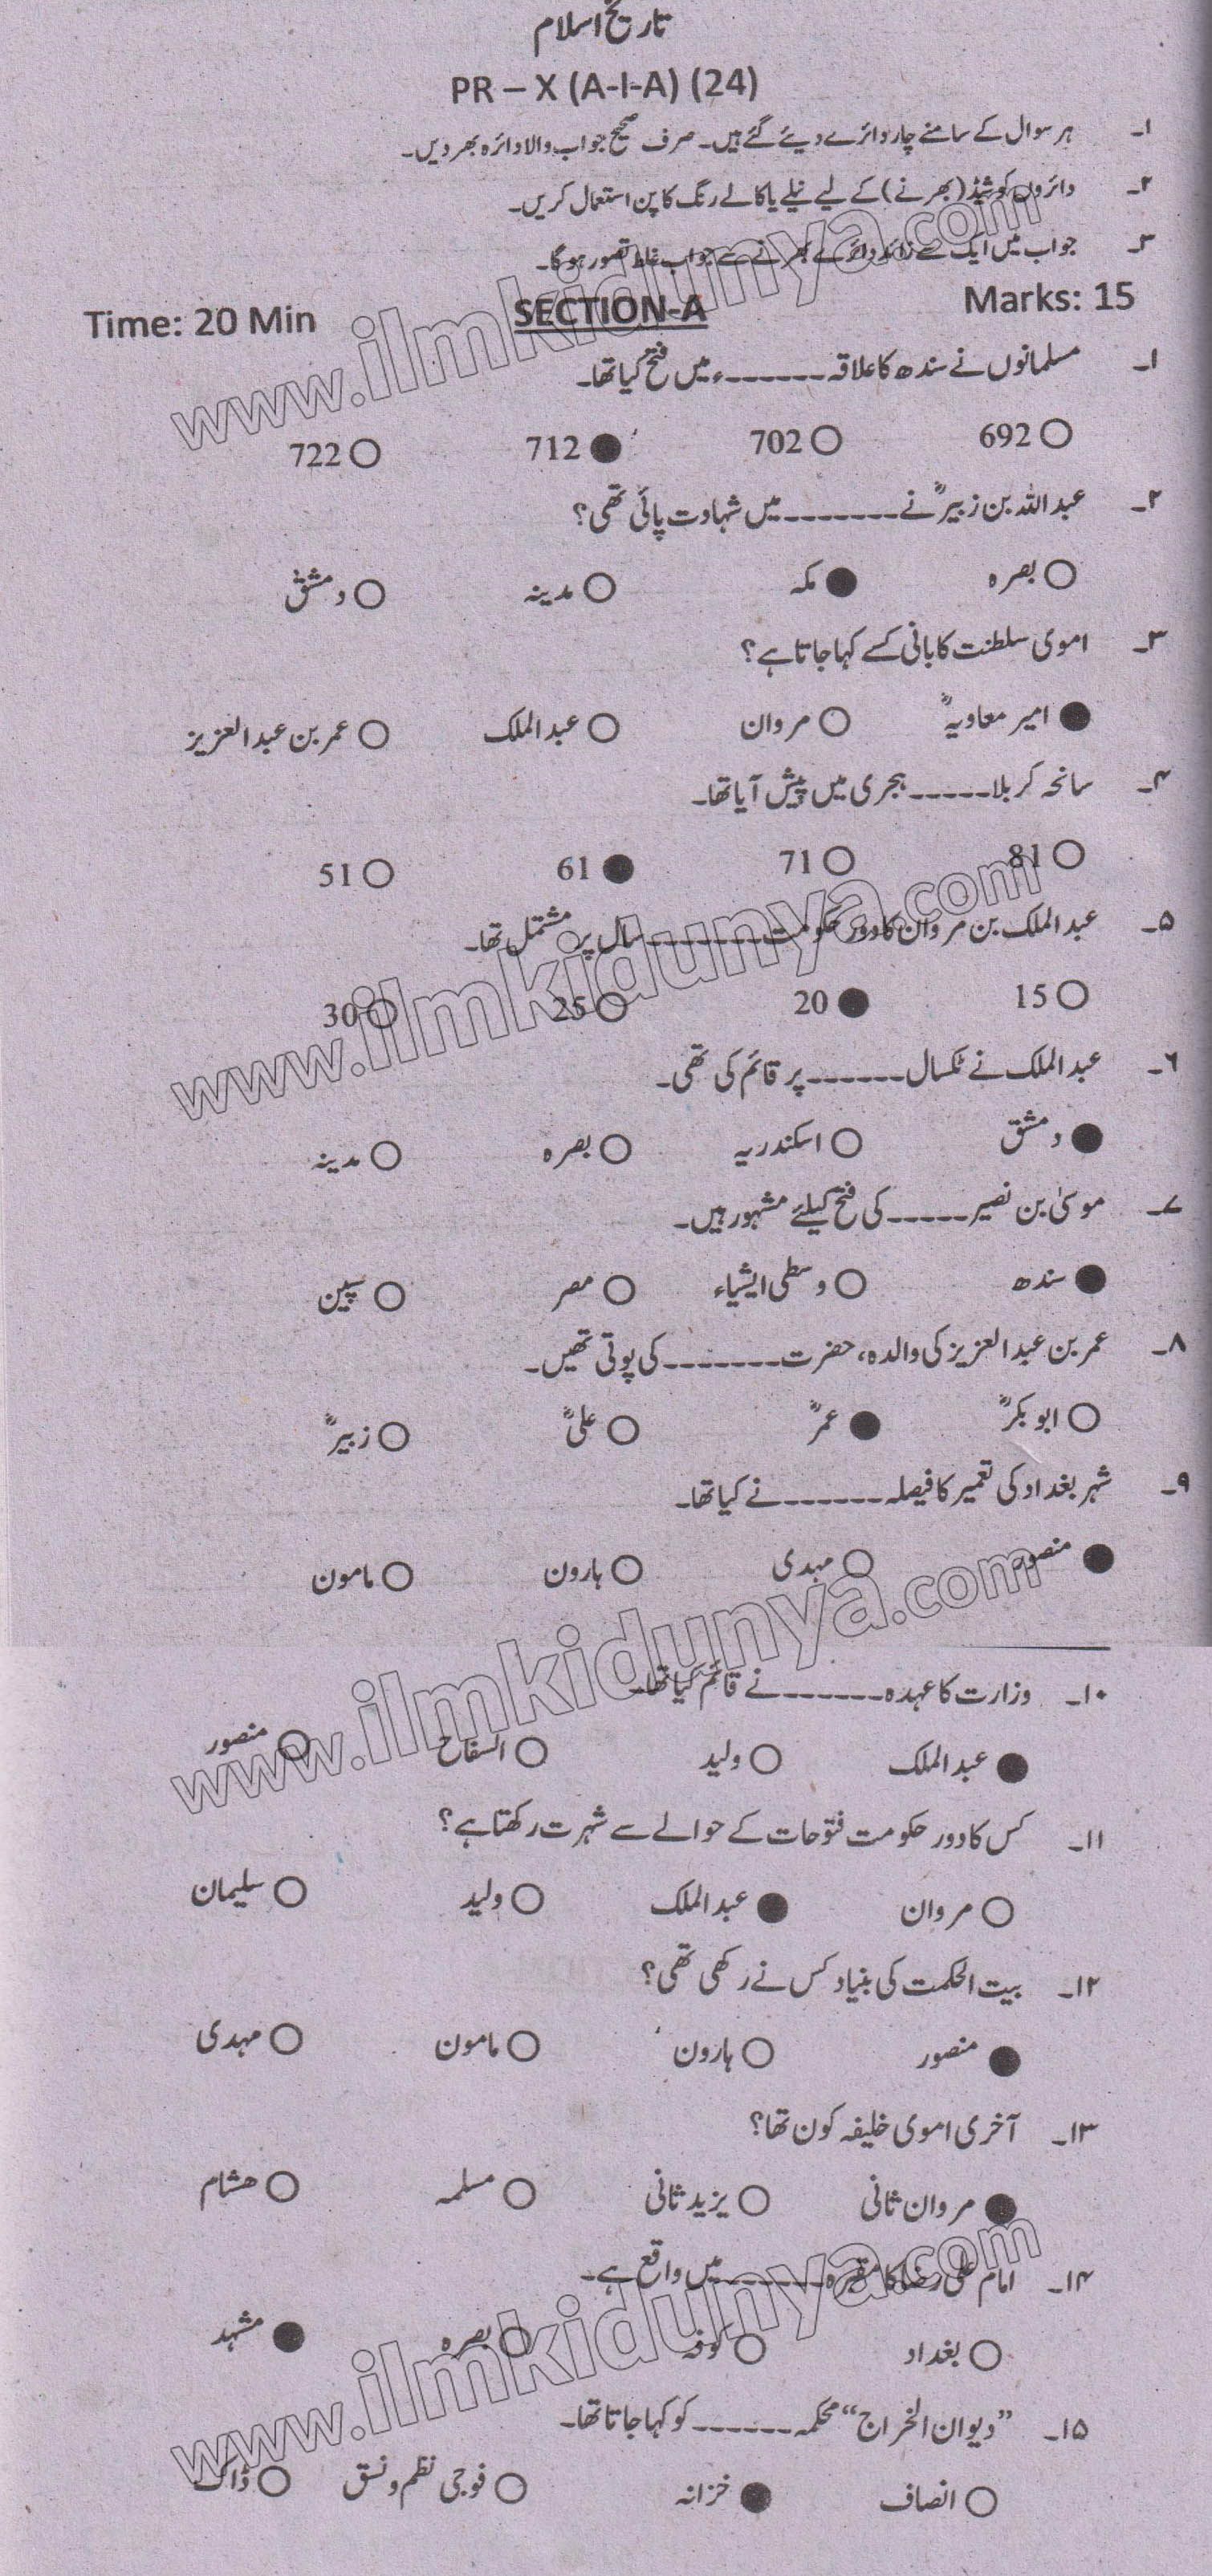 تاریخ اسلام
PR – X (A-I-A) (24)
۱۔ ہر سوال کے سامنے چار دائرے دیئے گئے ہیں۔ صرف صحیح جواب والا دائرہ بھر دیں۔
۲۔ دائروں کو شیڈ (بھرنے) کے لیے نیلے یا کالے رنگ کا پن استعمال کریں۔
۳۔ جواب میں ایک سے زائد دائرے بھرنے سے جواب غلط تصور ہو گا۔
Time: 20 Min SECTION-A Marks: 15
۱۔ مسلمانوں نے سندھ کا علاقہ ------ء میں فتح کیا تھا۔
○ 692 ○ 702 ● 712 ○ 722
۲۔ عبد اللہ بن زبیرؓ نے ------- میں شہادت پائی تھی؟
○ بصرہ ● مکہ ○ مدینہ ○ دمشق
۳۔ اموی سلطنت کا بانی کسے کہا جاتا ہے؟
● امیر معاویہؓ ○ مروان ○ عبد الملک ○ عمر بن عبد العزیز
۴۔ سانحہ کربلا ----- ہجری میں پیش آیا تھا۔
○ 81 ○ 71 ● 61 ○ 51
۵۔ عبد الملک بن مروان کا دور حکومت ------- سال پر مشتمل تھا۔
○ 15 ● 20 ○ 25 ○ 30
۶۔ عبد الملک نے ٹکسال ------ پر قائم کی تھی۔
● دمشق ○ اسکندریہ ○ بصرہ ○ مدینہ
۷۔ موسیٰ بن نصیر ----- کی فتح کیلئے مشہور ہیں۔
● سندھ ○ وسطی ایشیاء ○ مصر ○ سپین
۸۔ عمر بن عبد العزیز کی والدہ، حضرت ------- کی پوتی تھیں۔
○ ابو بکرؓ ● عمرؓ ○ علیؓ ○ زبیرؓ
۹۔ شہر بغداد کی تعمیر کا فیصلہ ------ نے کیا تھا۔
● منصور ○ مہدی ○ ہارون ○ مامون
۱۰۔ وزارت کا عہدہ ------ نے قائم کیا تھا۔
● عبد الملک ○ ولید ○ السفاح ○ منصور
۱۱۔ کس کا دور حکومت فتوحات کے حوالے سے شہرت رکھتا ہے؟
○ مروان ● عبد الملک ○ ولید ○ سلیمان
۱۲۔ بیت الحکمت کی بنیاد کس نے رکھی تھی؟
● منصور ○ ہارون ○ مامون ○ مہدی
۱۳۔ آخری اموی خلیفہ کون تھا؟
● مروان ثانی ○ یزید ثانی ○ مسلمہ ○ ھشام
۱۴۔ امام علی رضا کا مقبرہ ------ میں واقع ہے۔
○ بغداد ○ کوفہ ○ بصرہ ● مشہد
۱۵۔ ”دیوان الخراج“ محکمہ ------ کو کہا جاتا تھا۔
○ انصاف ● خزانہ ○ فوجی نظم و نسق ○ ڈاک
www.ilmkidunya.com
www.ilmkidunya.com
www.ilmkidunya.com
www.ilmkidunya.com